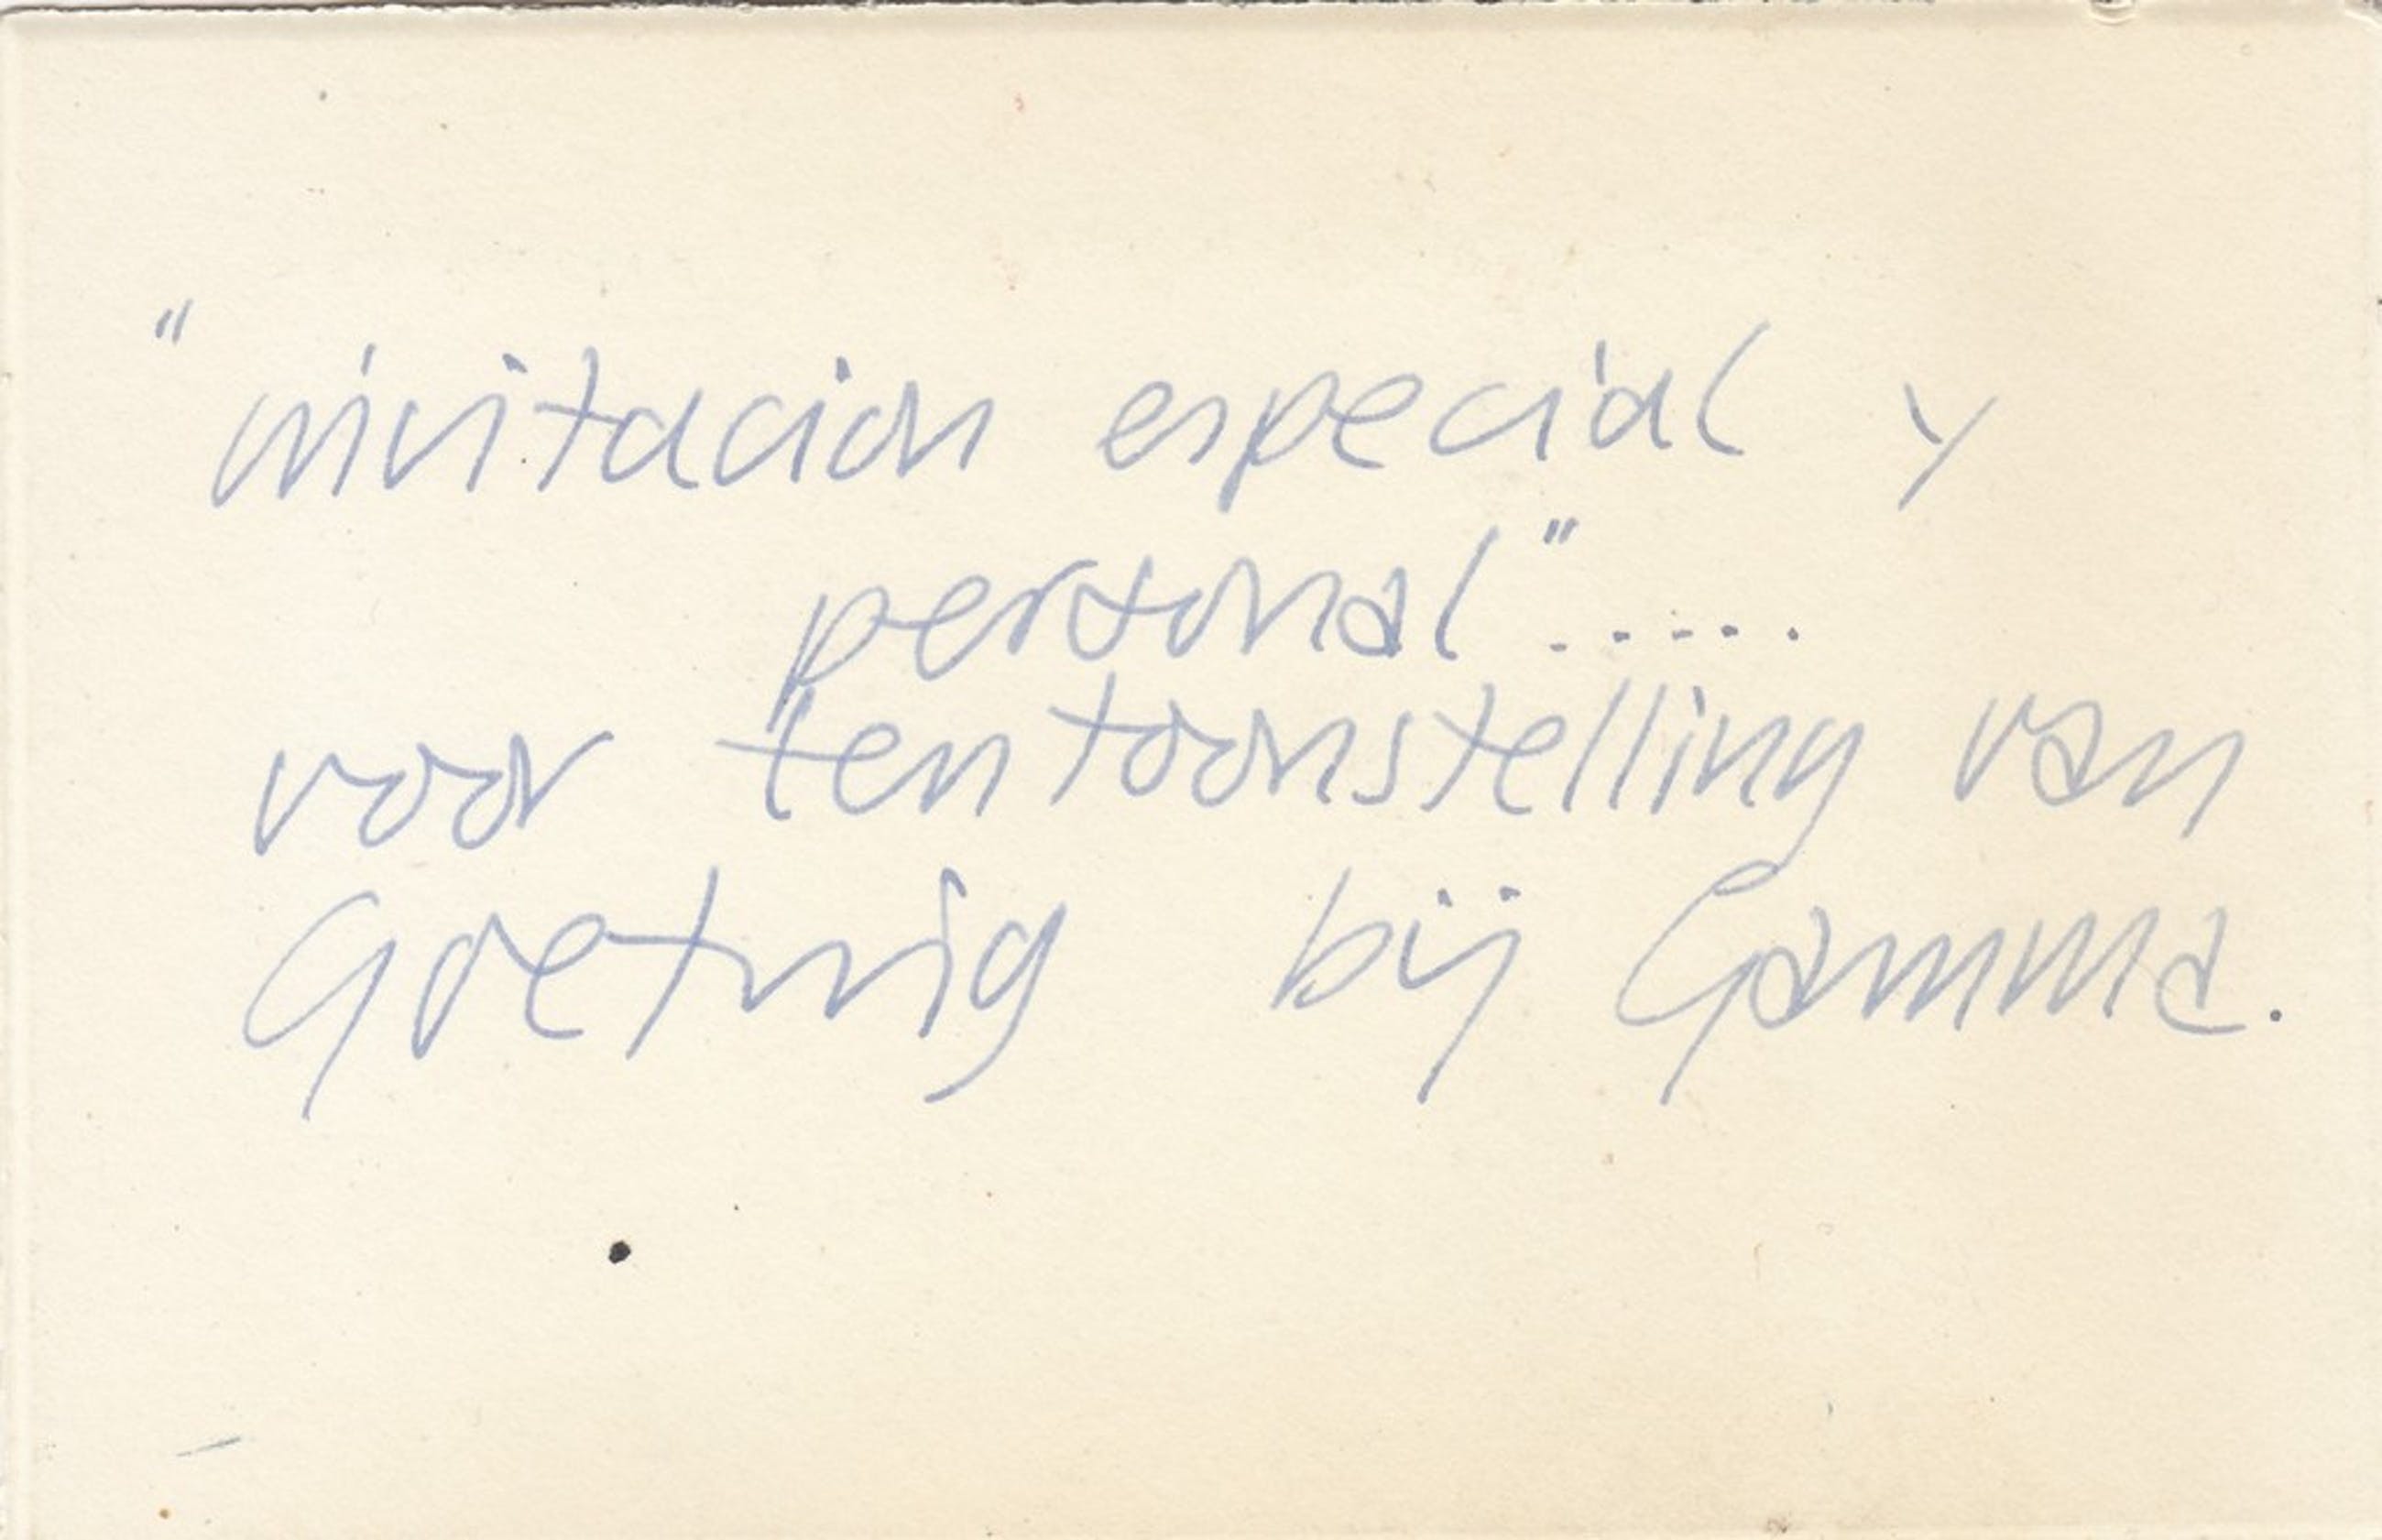 "invitacion especial y
personal".....
voor tentoonstelling van
bij Gamma.